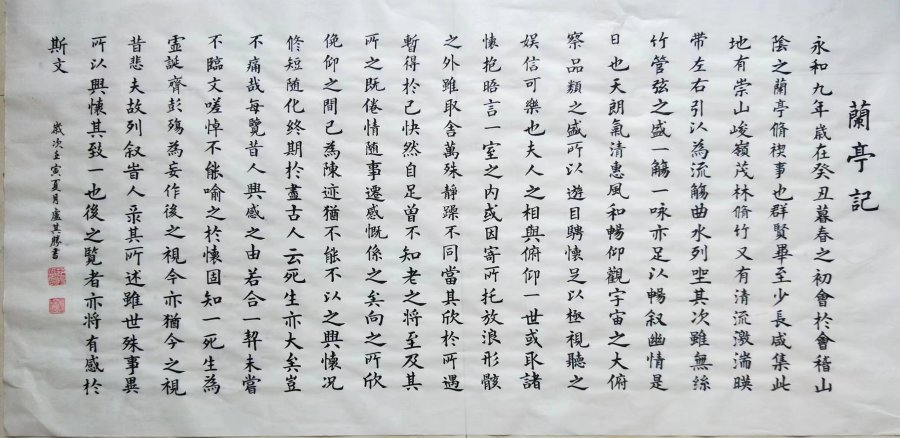 蘭亭記
永和九年歲在癸丑暮春之初會於會稽山
陰之蘭亭脩禊事也群賢畢至少長咸集此
地有崇山峻嶺茂林脩竹又有清流激湍暎
带左右引以為流觴曲水列坐其次雖無絲
竹管弦之盛一觴一咏亦足以暢叙幽情是
日也天朗氣清惠風和暢仰觀宇宙之大俯
察品類之盛所以遊目騁懷足以極視聽之
娱信可樂也夫人之相與俯仰一世或取諸
懷抱晤言一室之内或因寄所托放浪形骸
之外雖取舍萬殊靜躁不同當其欣於所遇
暫得於己快然自足曾不知老之將至及其
所之既倦情隨事遷感慨係之矣向之所欣
俛仰之間已為陳迹猶不能不以之興懷况
脩短随化終期於盡古人云死生亦大矣豈
不痛哉每覽昔人興感之由若合一契未嘗
不臨文嗟悼不能喻之於懷固知一死生為
虛誕齊彭殤為妄作後之視今亦猶今之視
昔悲夫故列叙旹人录其所述雖世殊事異
所以興懷其致一也後之覽者亦將有感於
斯文
歲次壬寅夏月盧其勝書